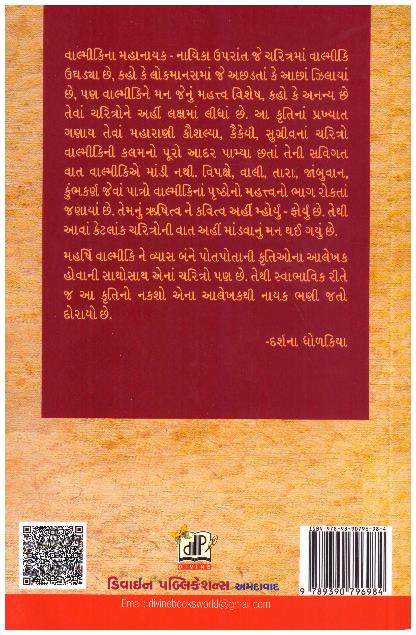 વાલ્મીકિના મહાનાયક - નાયિકા ઉપરાંત જે ચરિત્રમાં વાલ્મીકિ
ઉઘડ્યા છે, કહો કે લોકમાનસમાં જે અછડતાં કે આછાં ઝિલાયાં
છે, પણ વાલ્મીકિને મન જેનું મહત્ત્વ વિશેષ, કહો કે અનન્ય છે
તેવાં ચરિત્રોને અહીં લક્ષમાં લીધાં છે. આ કૃતિનાં પ્રખ્યાત
ગણાય તેવાં મહારાણી કૌશલ્યા, કૈકેયી, સુગ્રીવનાં ચરિત્રો
વાલ્મીકિની કલમનો પૂરો આદર પામ્યા છતાં તેની સવિગત
વાત વાલ્મીકિએ માંડી નથી. વિપક્ષે, વાલી, તારા, જાંબુવાન,
કુંભકર્ણ જેવાં પાત્રો વાલ્મીકિનાં પૃષ્ઠોનો મહત્ત્વનો ભાગ રોકતાં
જણાયાં છે. તેમનું ઋષિત્વ ને કવિત્વ અહીં મ્હોર્યું - ફોર્યું છે. તેથી
આવાં કેટલાંક ચરિત્રોની વાત અહીં માંડવાનું મન થઈ ગયું છે.
મહર્ષિ વાલ્મીકિ ને વ્યાસ બંને પોતપોતાની કૃતિઓના આલેખક
હોવાની સાથોસાથ એનાં ચરિત્રો પણ છે. તેથી સ્વાભાવિક રીતે
જ આ કૃતિનો નકશો એના આલેખકથી નાયક ભણી જતો
દોરાયો છે.
-દર્શના ધોળકિયા
ISBN 978-93-90796-98-4
DIVINE
ડિવાઈન પબ્લિકેશન્સ અમદાવાદ
9789390796984
Email : divinebooksworld@gmail.com